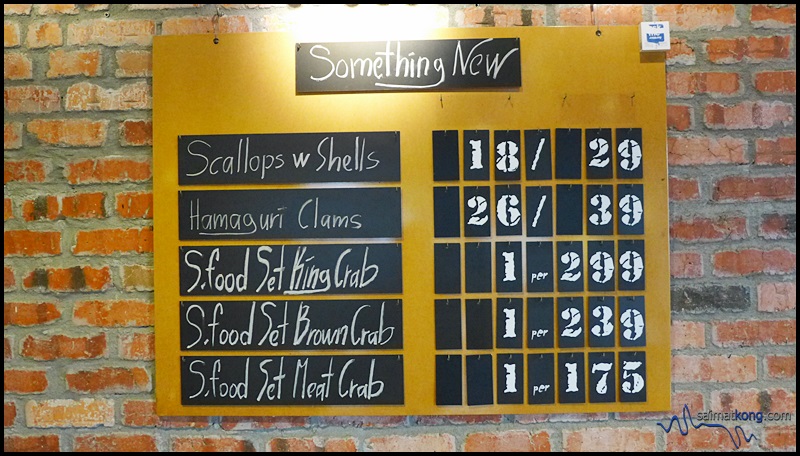 Something New
Scallops w Shells 18/ 29
Hamaguri Clams 26/ 39
S.food Set King Crab 1 per 299
S.food Set Brown Crab 1 per 239
S.food Set Meat Crab 1 per 175
saimatkong.com